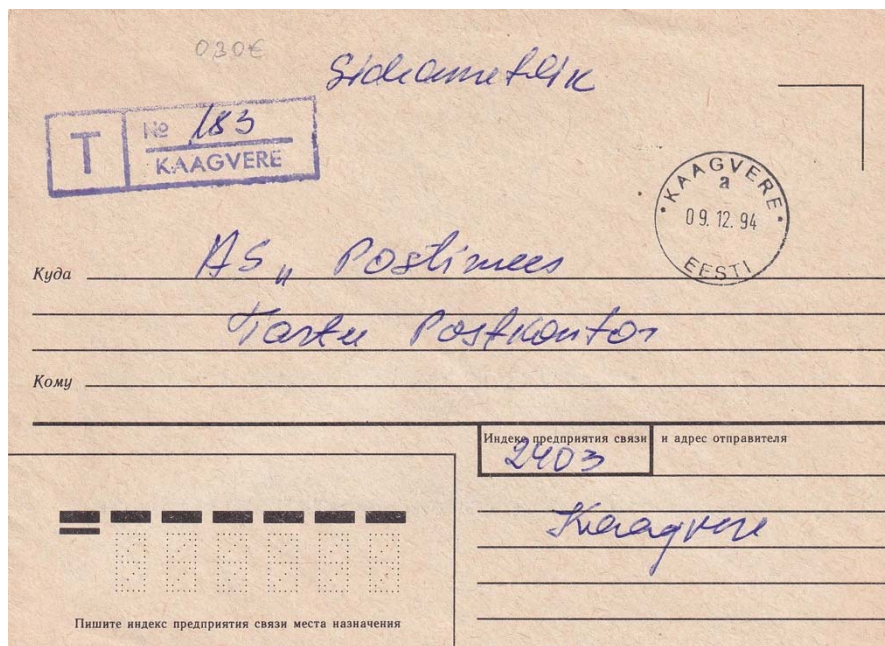 030€
Sideametlik
T № 183
KAAGVERE
KAAGVERE
a
09.12.94
EESTI
Куда AS "Postimees
Tartu Postkontor
Кому
Индекс предприятия связи и адрес отправителя
2403
Kaagvere
Пишите индекс предприятия связи места назначения